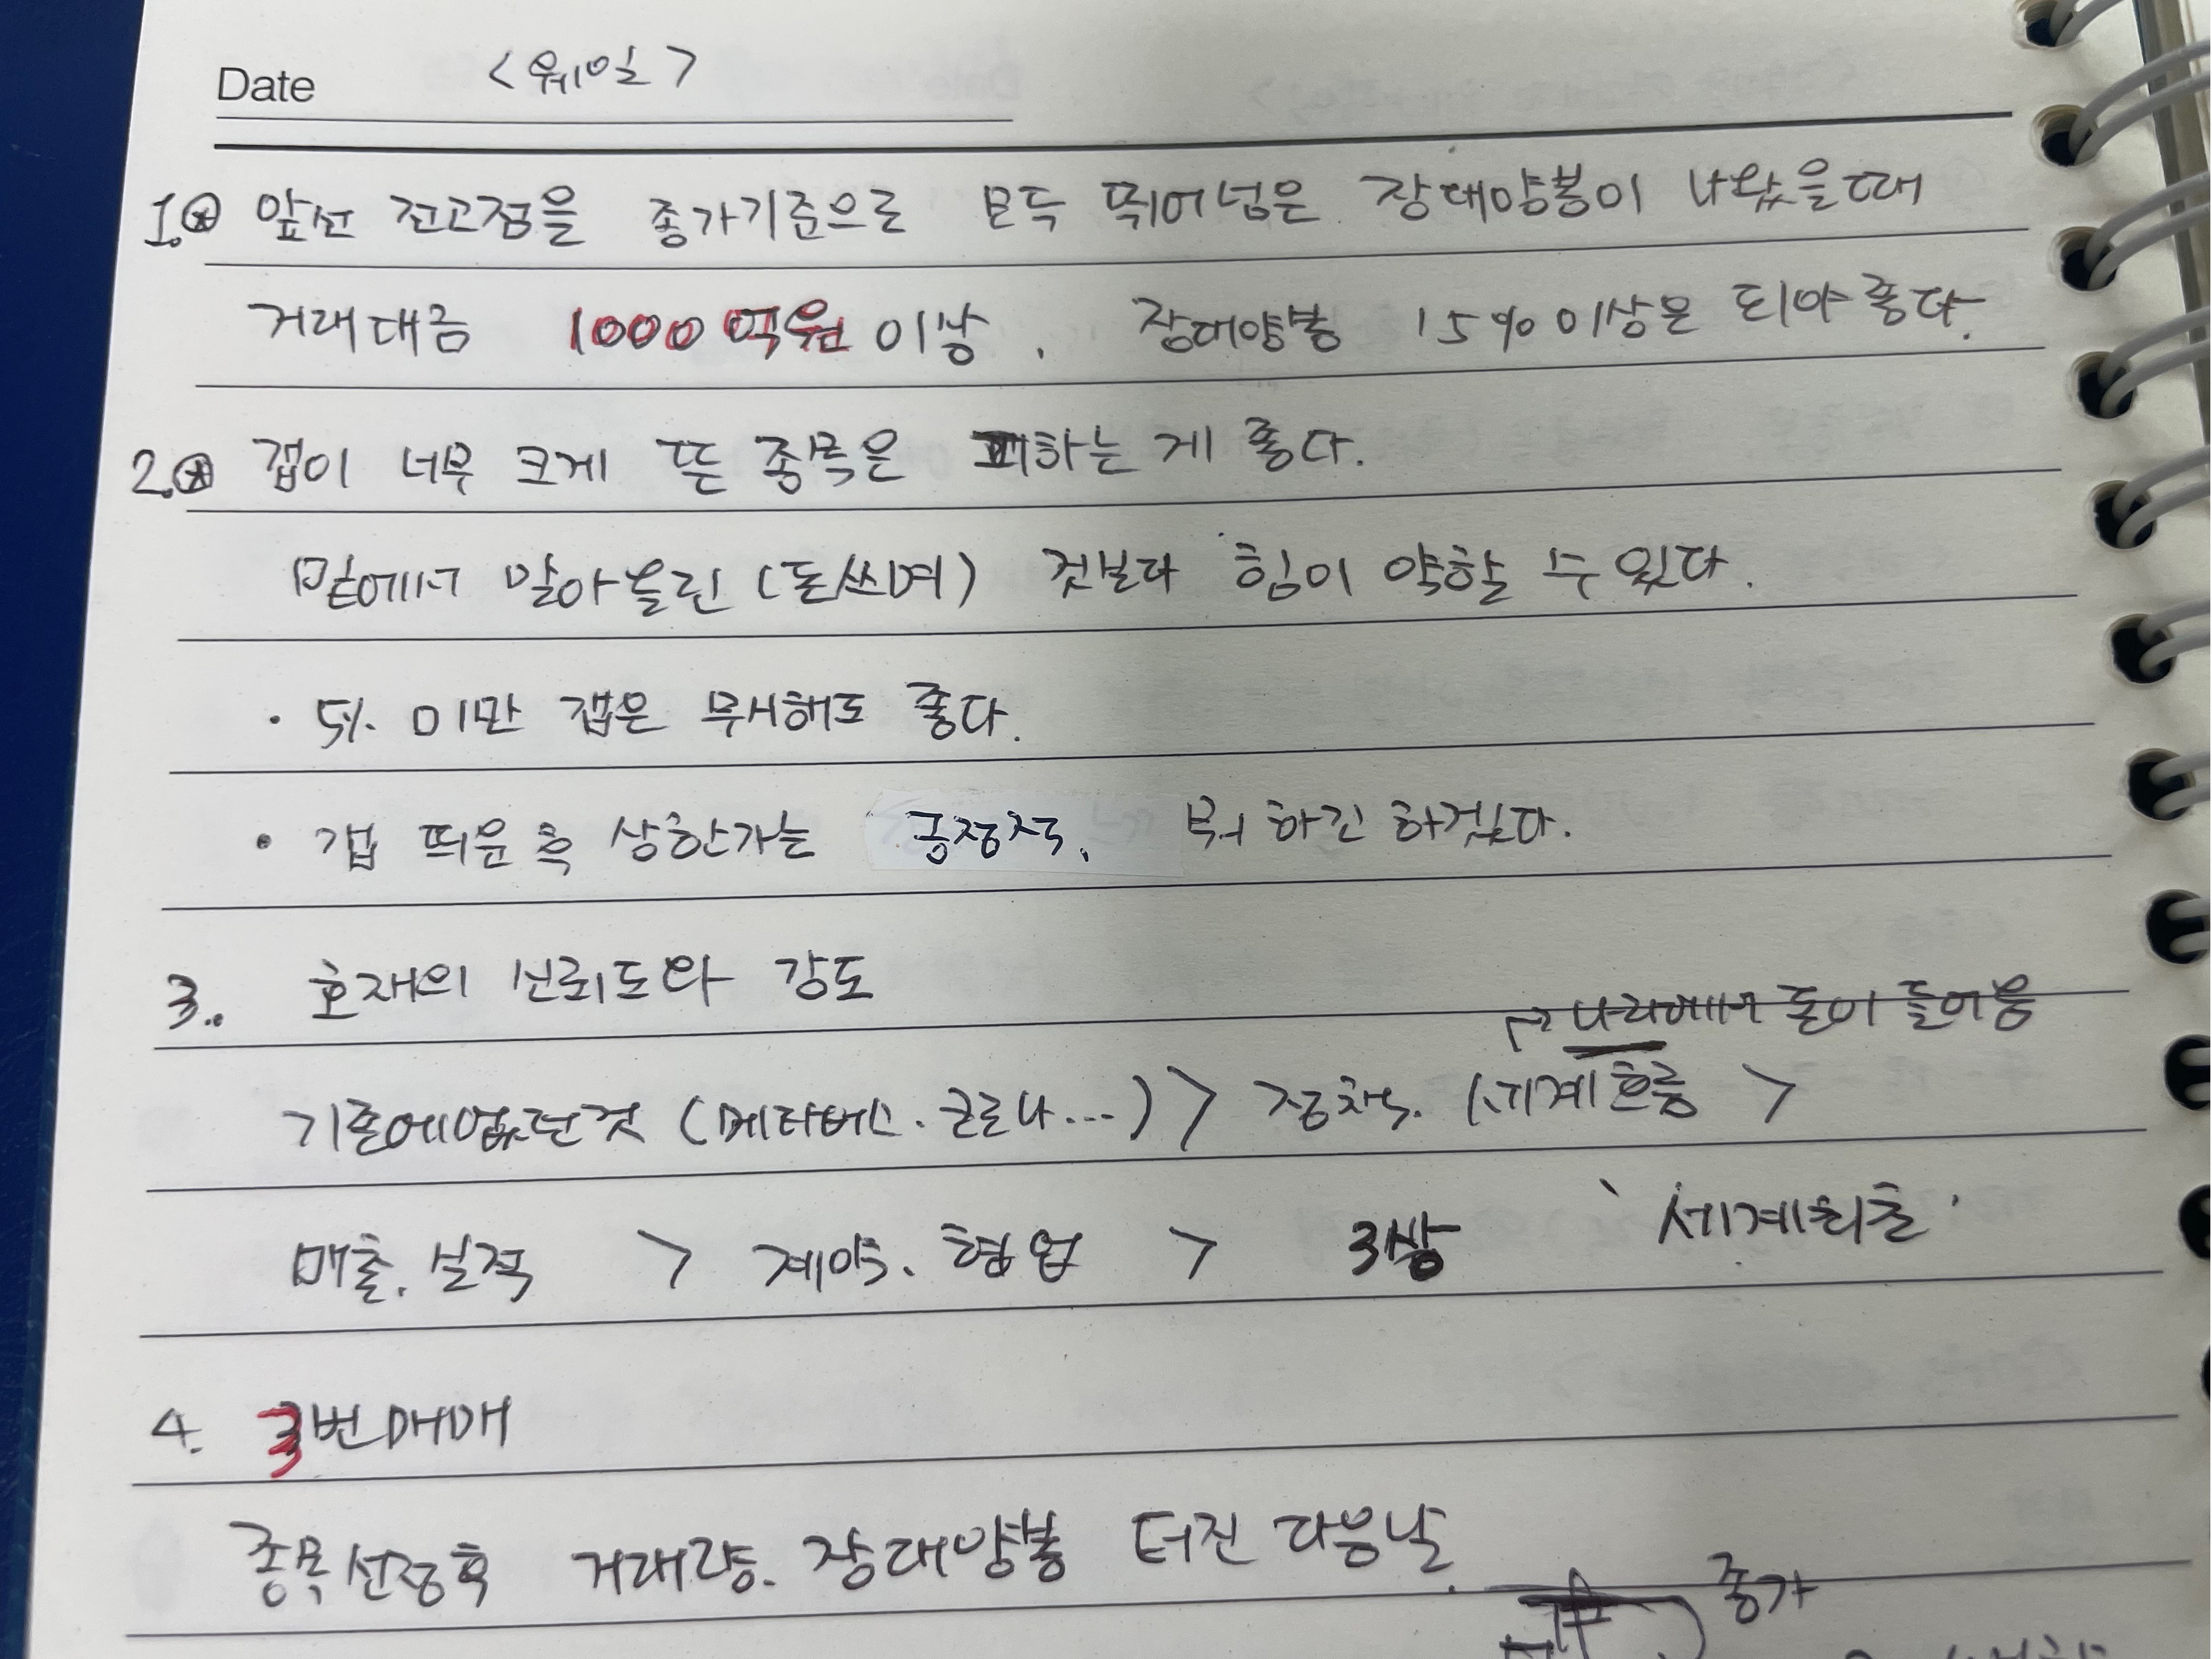 Date <웨일>
1. 앞선 전고점을 종가기준으로 모두 뛰어넘은 장대양봉이 나왔을때
거래대금 1000억원 이상. 장대양봉 15%이상은 되야 좋다.
2. 갭이 너무 크게 뜬 종목은 피하는 게 좋다.
밑에서 말아올린 (돈쓰며) 것보다 힘이 약할 수 있다.
· 5% 미만 갭은 무시해도 좋다.
· 갭 띄운 후 상한가는 긍정적. 하긴 하겠다.
3. 호재의 신뢰도와 강도
나라에서 돈이 들어옴
기존에없던것 (메타버스. 코로나...) > 정책. (세계흐름 >
매출. 실적 > 계약. 협업 > 3상 '세계최초'
4. 3번매매
종목선정후 거래량. 장대양봉 터진 다음날.
종가